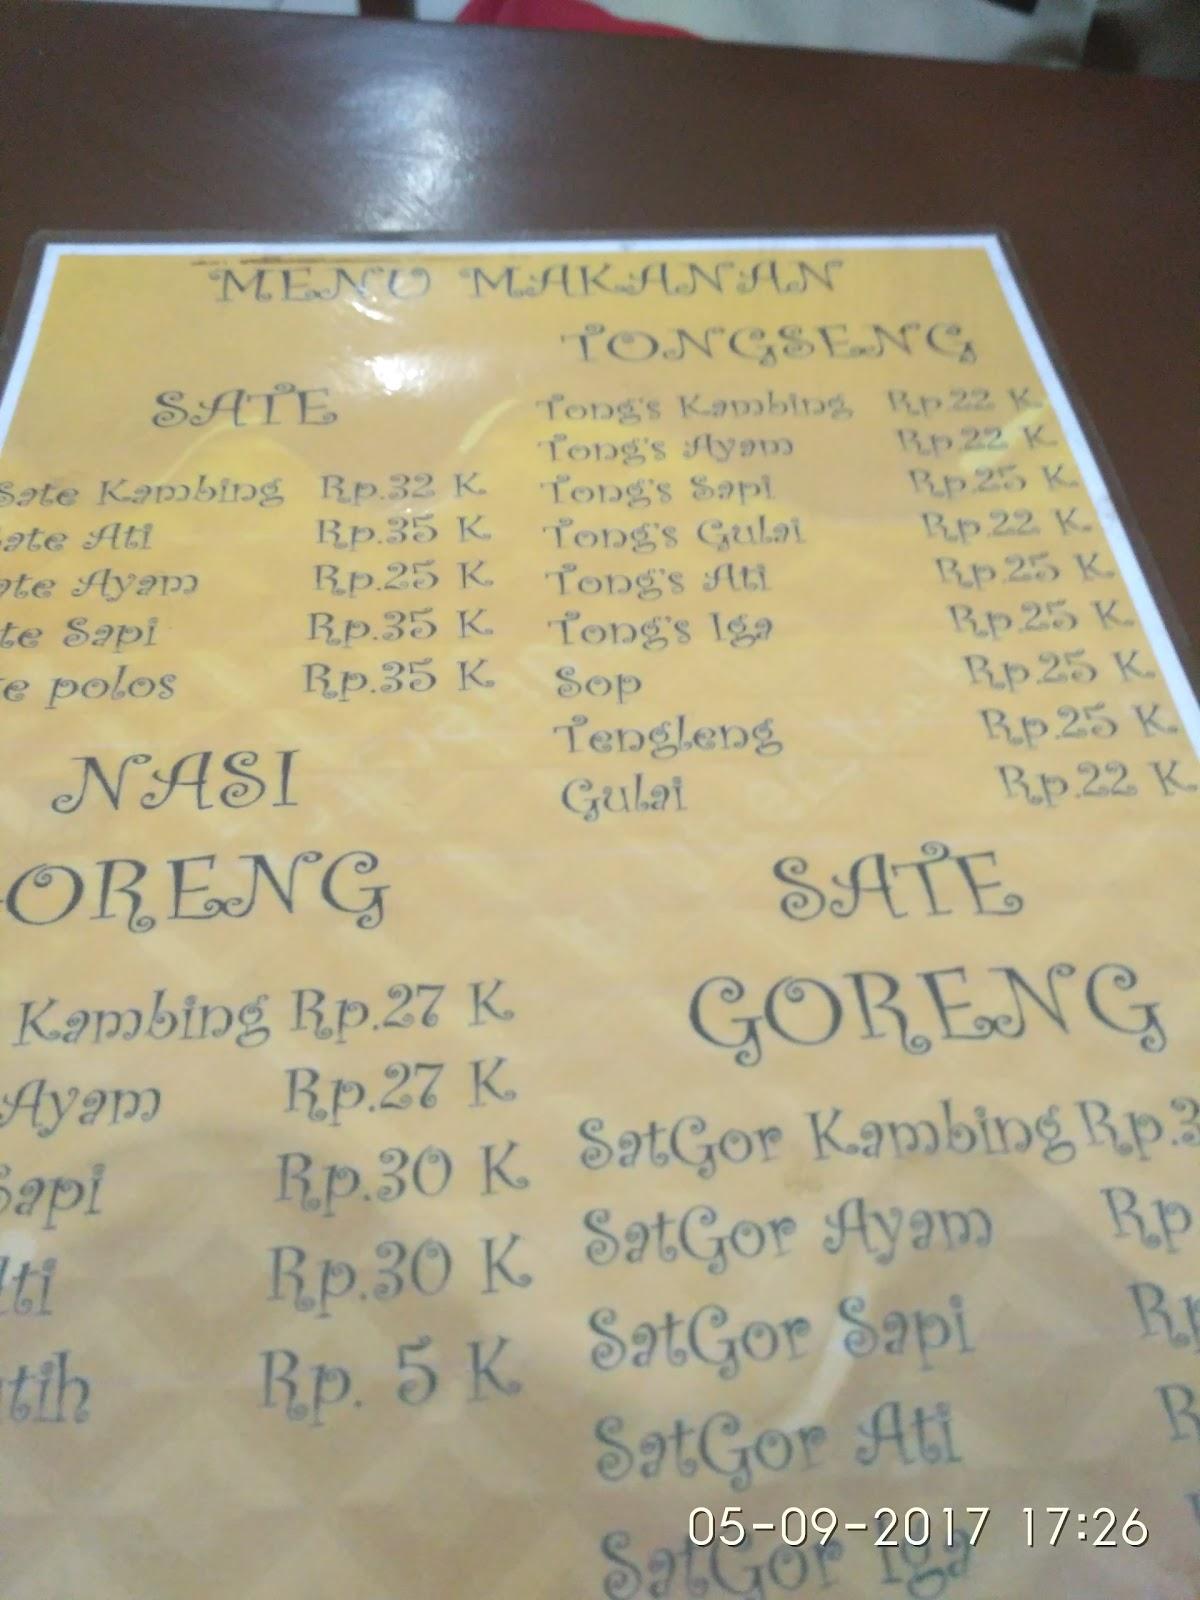 MENU MAKANAN
SATE
Sate Kambing Rp.32 K
ate Ati Rp.35 K
ate Ayam Rp.25 K
te Sapi Rp.35 K
e polos Rp.35 K
TONGSENG
Tong's Kambing Rp.22 K
Tong's Ayam Rp.22 K
Tong's Sapi Rp.25 K
Tong's Gulai Rp.22 K
Tong's Ati Rp.25 K
Tong's Iga Rp.25 K
Sop Rp.25 K
Tengleng Rp.25 K
Gulai Rp.22 K
NASI
ORENG
Kambing Rp.27 K
Ayam Rp.27 K
Sapi Rp.30 K
Ati Rp.30 K
utih Rp. 5 K
SATE
GORENG
SatGor Kambing Rp.3
SatGor Ayam Rp
SatGor Sapi Rp
SatGor Ati R
SatGor Iga
05-09-2017 17:26